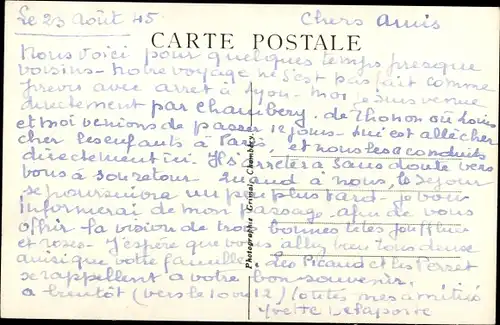 Le 23 Août 45.
Chers Amis
CARTE POSTALE
Nous voici pour quelques temps presque
voisins - Notre voyage ne s'est pas fait comme
prévu avec arrêt à Lyon - moi je suis venue
directement par Chambéry. de Thonon où Louis
et moi venions de passer 12 jours - lui est allé cher
cher les enfants à Paris, et nous les a conduits
directement ici. Il s'arrêtera sans doute vers
vous à son retour. Quand à nous, le séjour
se poursuivra un peu plus tard - je vous
informerai de mon passage, afin de vous
offrir la vision de trois bonnes têtes joufflues
et roses - J'espère que vous allez bien tous deux
ainsi que votre famille. Les Picaud et les Perret
se rappellent à votre bon souvenir.
à bientôt (vers le 10 ou 12) Toutes mes amitiés
Yvette Delaporte
Photographie Grimal, Chambéry